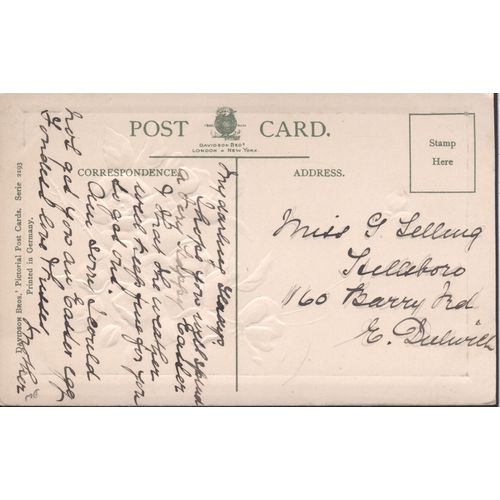 POST CARD.
DAVIDSON BROS.
LONDON & NEW YORK.
CORRESPONDENCE.
ADDRESS.
Stamp
Here
DAVIDSON BROS.' Pictorial Post Cards. Serie 2193
Printed in Germany.
My darling Gladys
I hope you will spend
a very happy Easter
& that the weather
will keep fine for you
to get out.
Am sorry I could
not get you an Easter egg
Fondest love & kisses
Mother
Miss G Selling
Hillsboro
160 Barry Rd
E. Dulwich